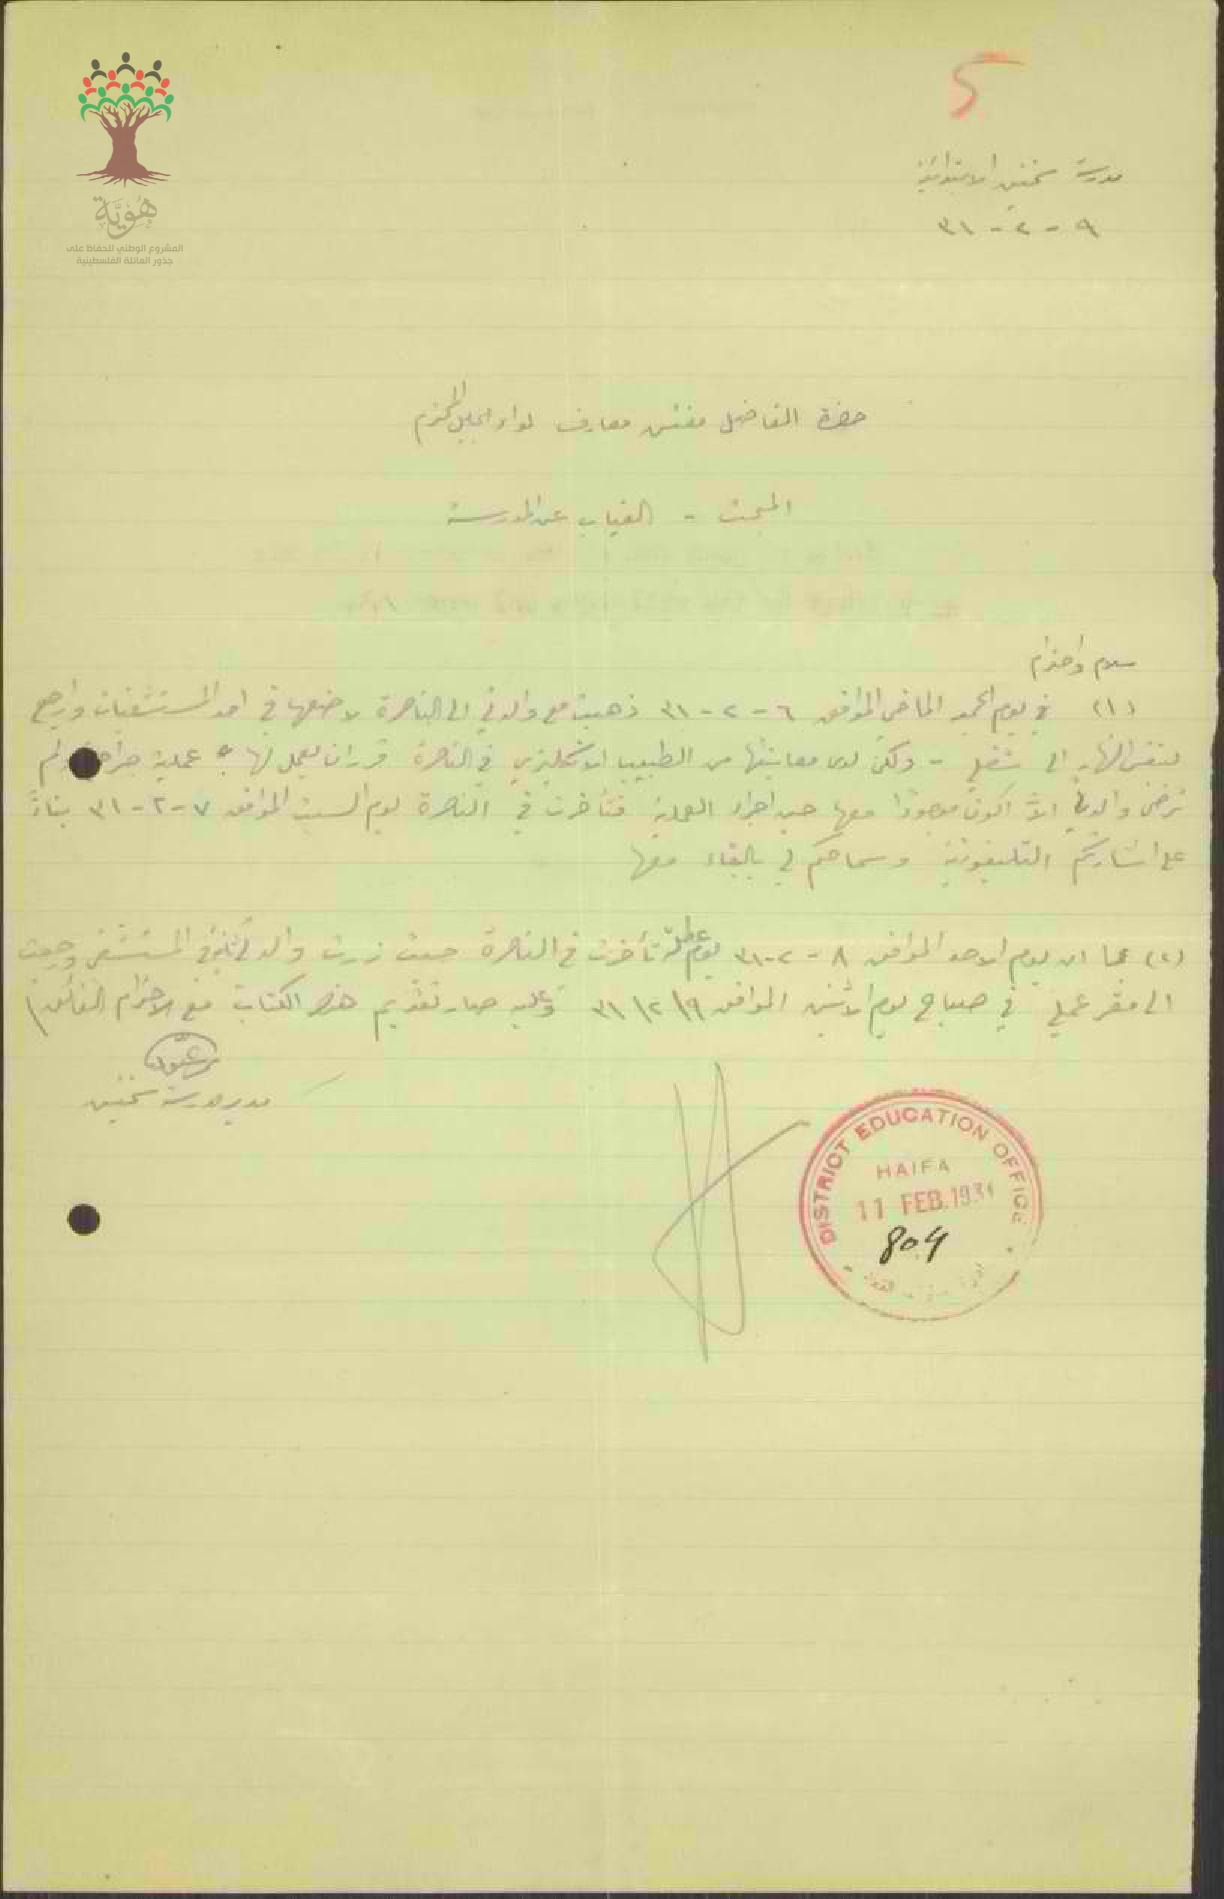 5
هُوِيَّة
المشروع الوطني للحفاظ على
جذور العائلة الفلسطينية
مدرسة سخنين الابتدائية
٩ - ٢ - ٣١
حضرة الفاضل مفتش معارف لواء الجليل المحترم
المبحث - الغياب عن المدرسة
سلام واحترام
(١) في يوم الجمعة الماضي الموافق ٦ - ٢ - ٣١ ذهبت مع والدتي الى الناصرة لاضعها في احد المستشفيات وارجع
لنفس النهار الى شغلي - ولكن لدى معاينتها من الطبيب الانكليزي في الناصرة قرر ان يعمل لها عملية جراحية ولم
ترض والدتي الا ان اكون موجودًا معها حين اجراء العملية فتأخرت في الناصرة يوم السبت الموافق ٧ - ٢ - ٣١ بناءً
على اشارتكم التليفونية وسماحكم لي بالبقاء معها
(٢) بما ان يوم الاحد الموافق ٨ - ٢ - ٣١ يوم عطلة تأخرت في الناصرة حيث زرت والدتي في المستشفى ورجعت
الى مقر عملي في صباح يوم الاثنين الموافق ٩\٢\٣١ وعليه صار تقديم هذا الكتاب مع الاحترام الفائق\
مدير مدرسة سخنين
DISTRICT EDUCATION OFFICE
HAIFA
11 FEB.1931
804